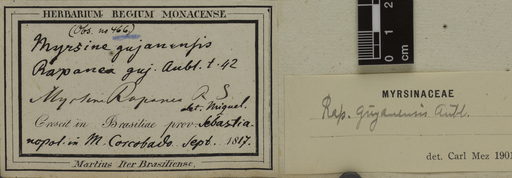 HERBARIUM REGIUM MONACENSE
(Obs. no 466)
Myrsine gujanensis
Rapanea guj. Aubl. t. 42
Myrsine Rapanea
det. Miquel.
Crescit in Brasiliae prov. Sebastia-
nopol. in M. Corcobado. Sept. 1817.
Martius Iter Brasiliense.
0 1 2
cm
MYRSINACEAE
Rap. guyanensis Aubl.
det. Carl Mez 1901